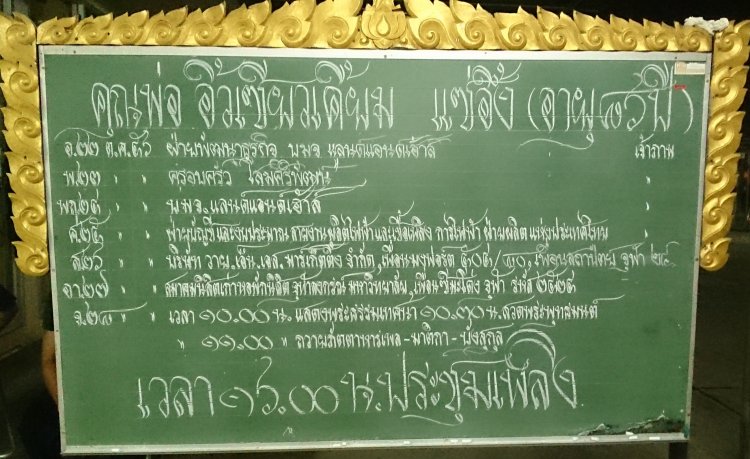 คุณพ่อ อิ้วเซียวเคี้ยม แซ่อึ้ง (อายุ๘๖ปี)
อ.๒๒ ต.ค.๕๖ ฝ่ายพัฒนาธุรกิจ บมจ.แลนด์แอนด์เฮ้าส์ เจ้าภาพ
พ.๒๓ " " ครอบครัว โฆษิตศิริพัฒน์ "
พฤ.๒๔ " " บมจ.แลนด์แอนด์เฮ้าส์ "
ศ.๒๕ " " ฝ่ายบัญชีและงบประมาณ สายงานผลิตไฟฟ้าและเชื้อเพลิง การไฟฟ้า ฝ่ายผลิต แห่งประเทศไทย "
ส.๒๖ " " บริษัท วาย.เอ็น.เอส. มาร์เก็ตติ้ง จำกัด, เพื่อน
อา.๒๗ " " สมาคมนิสิตเก่าหอพักนิสิต จุฬาลงกรณ์ มหาวิทยาลัย, เพื่อนซีมะโด่ง จุฬา รหัส ๒๕๒๔
จ.๒๘ " " เวลา ๑๐.๐๐ น. แสดงพระธรรมเทศนา ๑๐.๓๐ น. สวดพระพุทธมนต์
" ๑๑.๐๐ " ถวายภัตตาหารเพล - มาติกา - บังสุกุล
เวลา ๑๖.๐๐ น. ประชุมเพลิง